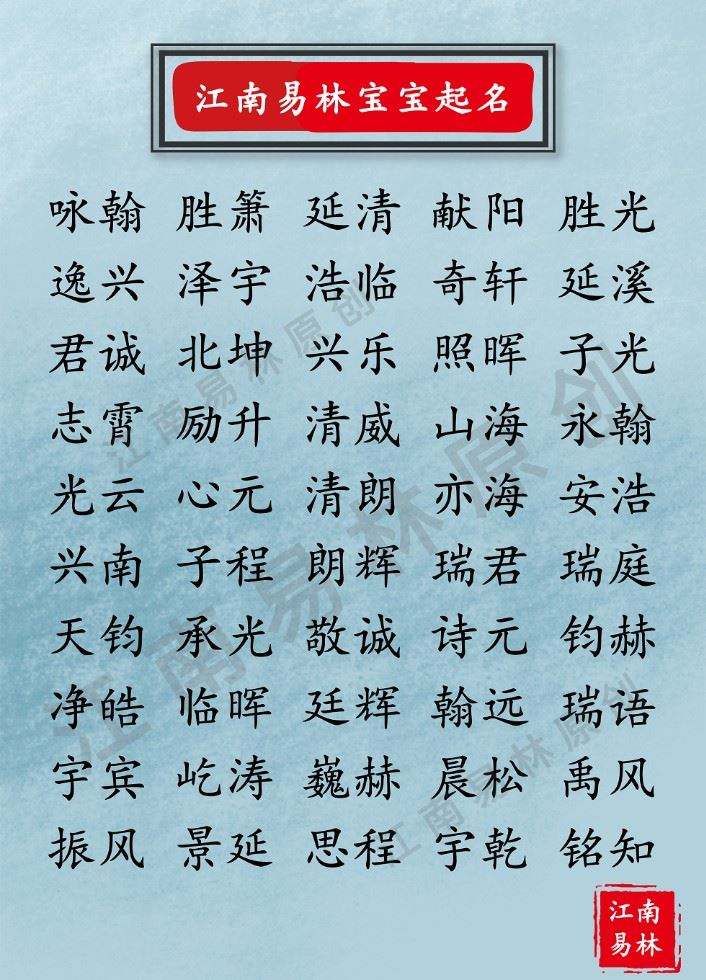 江南易林宝宝起名
咏翰 胜箫 延清 献阳 胜光
逸兴 泽宇 浩临 奇轩 延溪
君诚 北坤 兴乐 照晖 子光
志霄 励升 清威 山海 永翰
光云 心元 清朗 亦海 安浩
兴南 子程 朗辉 瑞君 瑞庭
天钧 承光 敬诚 诗元 钧赫
净皓 临晖 廷辉 翰远 瑞语
宇宾 屹涛 巍赫 晨松 禹风
振风 景延 思程 宇乾 铭知
江南易林原创
江南易林原创
江南易林原创
江南
易林